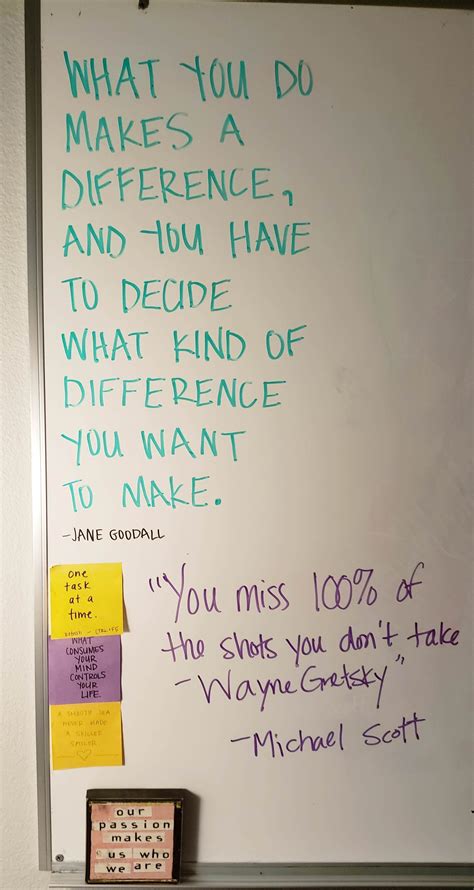 WHAT YOU DO
MAKES A
DIFFERENCE,
AND YOU HAVE
TO DECIDE
WHAT KIND OF
DIFFERENCE
YOU WANT
TO MAKE.
-JANE GOODALL
one
task
at a
time.
WHAT
CONSUMES
YOUR
MIND
CONTROLS
YOUR
LIFE
A SMOOTH SEA
NEVER MADE
A SKILLED
SAILOR
"You miss 100% of
the shots you don't take
-Wayne Gretsky"
-Michael Scott
our
passion
makes
us who
we are